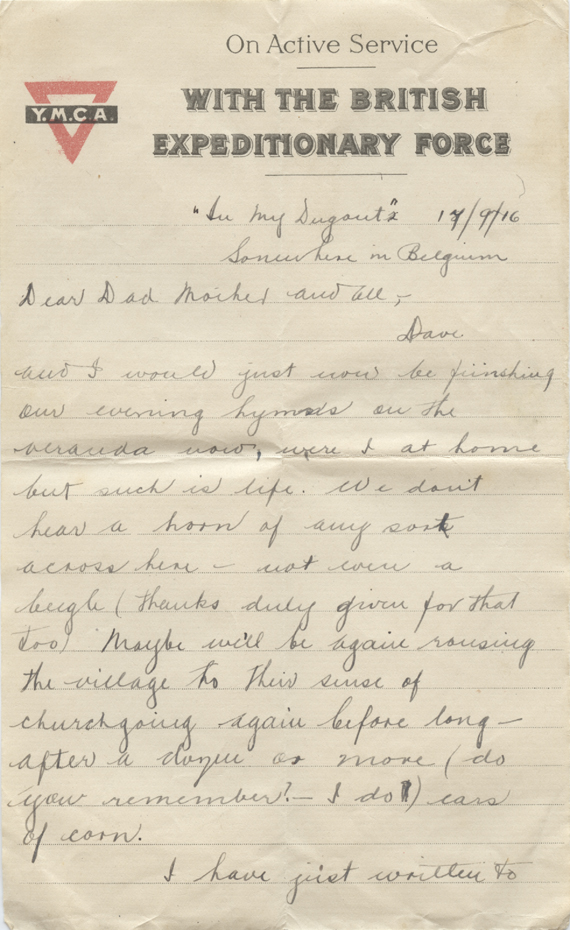 On Active Service
WITH THE BRITISH
EXPEDITIONARY FORCE
Y.M.C.A.
"In My Dugout" 17/9/16
Somewhere in Belgium
Dear Dad Mother and all,-
Dave
and I would just now be finishing
our evening hymns on the
veranda now, were I at home
but such is life. We don't
hear a horn of any sort
across here - not even a
beugle (thanks duly given for that
too) Maybe we'll be again rousing
the village to their sense of
churchgoing again before long -
after a dozen or more (do
you remember? - I do!) ears
of corn.
I have just written to